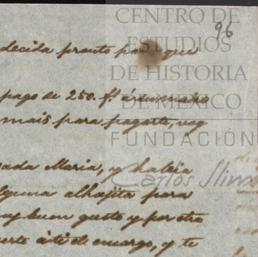 CENTRO DE
ESTUDIOS
DE HISTORIA
DE MÉXICO
FUNDACIÓN
Carlos Slim
96
decida pronto para que
pago de 250. f.
mais para pagarte, voy
ada Maria, y habia
alguna alhajita para
uy buen gusto y por otro
este encargo, y te